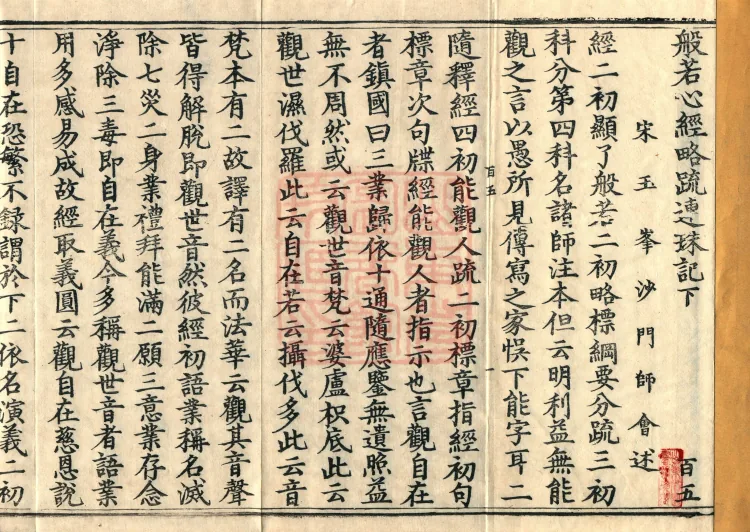 般若心經略疏連珠記下
百五
宋玉峯沙門師會述
經二初顯了般若二初略標綱要分疏三初
科分第四科名諸師注本但云明利益無能
觀之言以愚所見傳寫之家悞下能字耳二
百五
一
隨釋經四初能觀人疏二初標章指經初句
標章次句牒經能觀人者指示也言觀自在
者鎮國曰三業歸依十通隨應鑒無遺照益
無不周然或云觀世音梵云婆盧枳底此云
觀世濕伐羅此云自在若云攝伐多此云音
梵本有二故譯有二名而法華云觀其音聲
皆得解脫即觀世音然彼經初語業稱名滅
除七災二身業禮拜能滿二願三意業存念
淨除三毒即自在義今多稱觀世音者語業
用多感易成故經取義圓云觀自在慈恩說
十自在恐繁不錄謂於下二依名演義二初